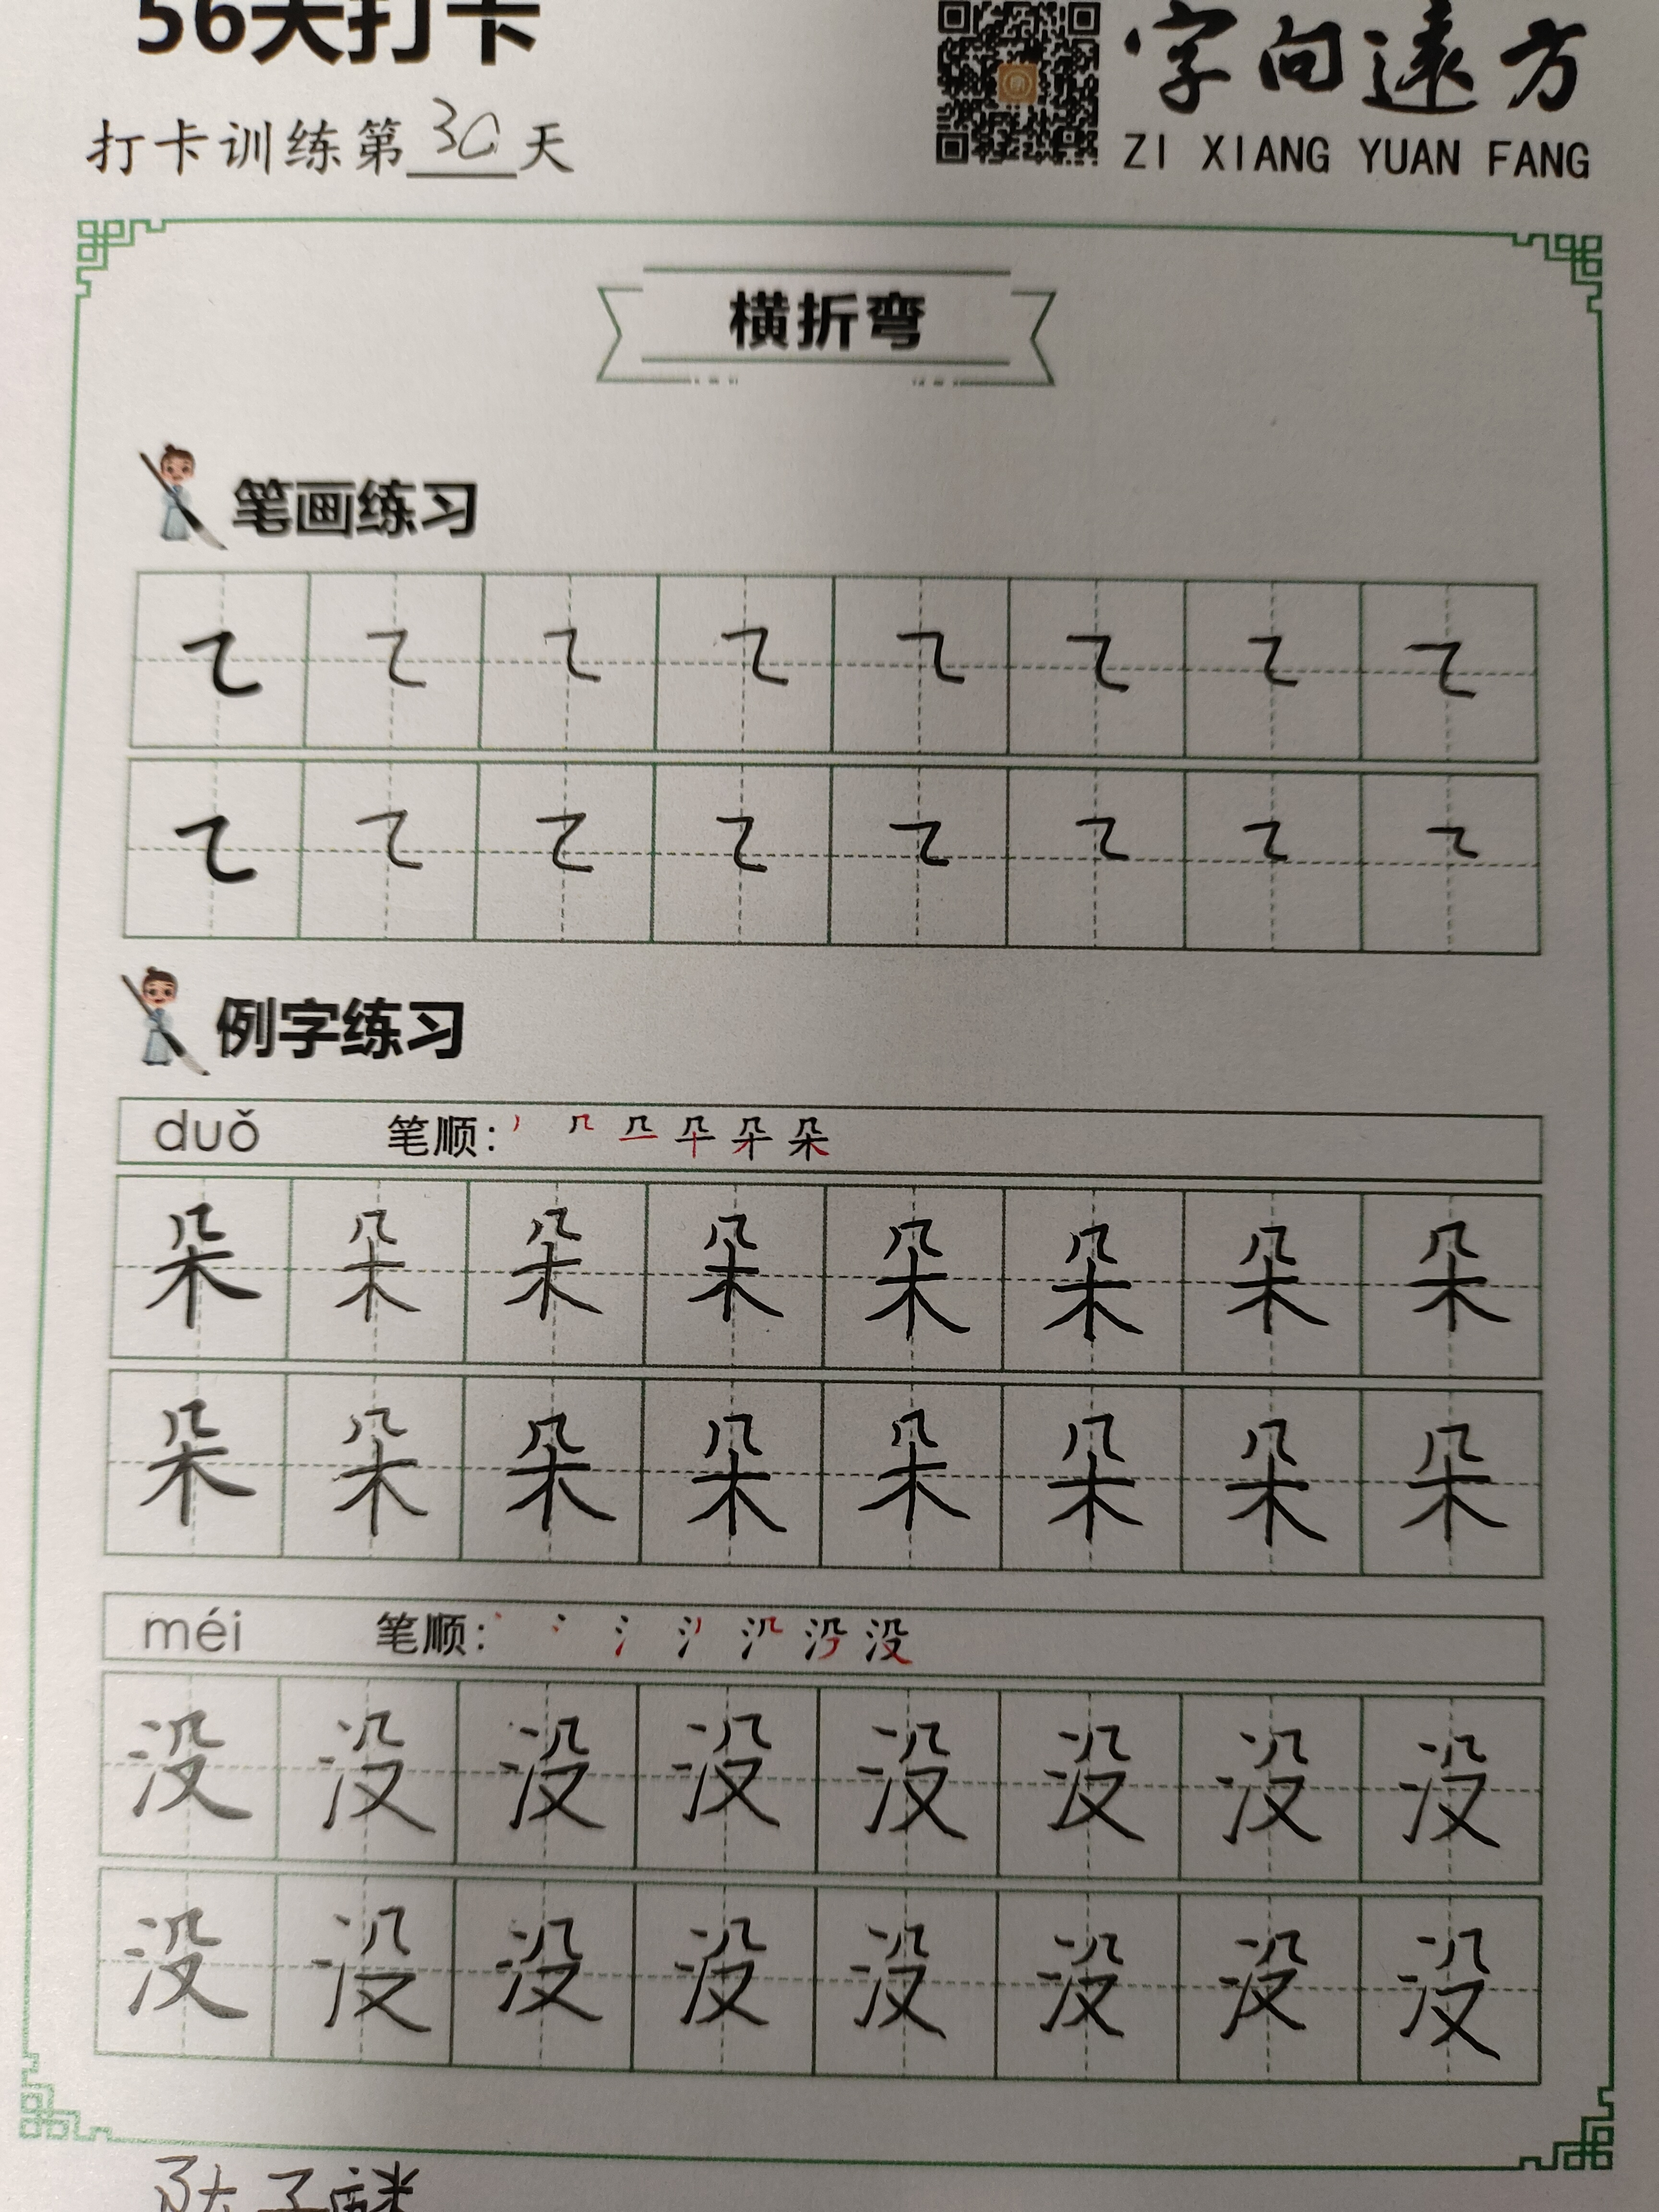 56天打卡
字向遠方
打卡训练第30天
ZI XIANG YUAN FANG
横折弯
笔画练习
㇍ ㇍ ㇍ ㇍ ㇍ ㇍ ㇍ ㇍
㇍ ㇍ ㇍ ㇍ ㇍ ㇍ ㇍ ㇍
例字练习
duǒ 笔顺:
朵 朵 朵 朵 朵 朵 朵 朵
朵 朵 朵 朵 朵 朵 朵 朵
méi 笔顺:
没 没 没 没 没 没 没 没
没 没 没 没 没 没 没 没